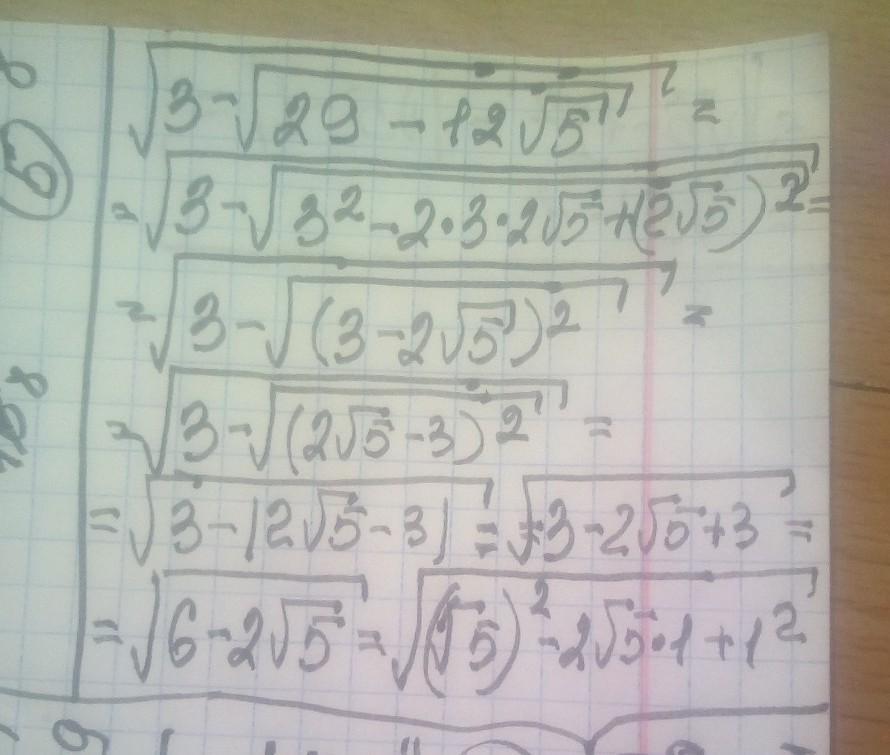 √(3-√(29-12√5)) =
= √(3-√(3²-2·3·2√5+(2√5)²)) =
= √(3-√((3-2√5)²)) =
= √(3-√((2√5-3)²)) =
= √(3-|2√5-3|) = √(3-2√5+3) =
= √(6-2√5) = √((√5)²-2√5·1+1²)
5